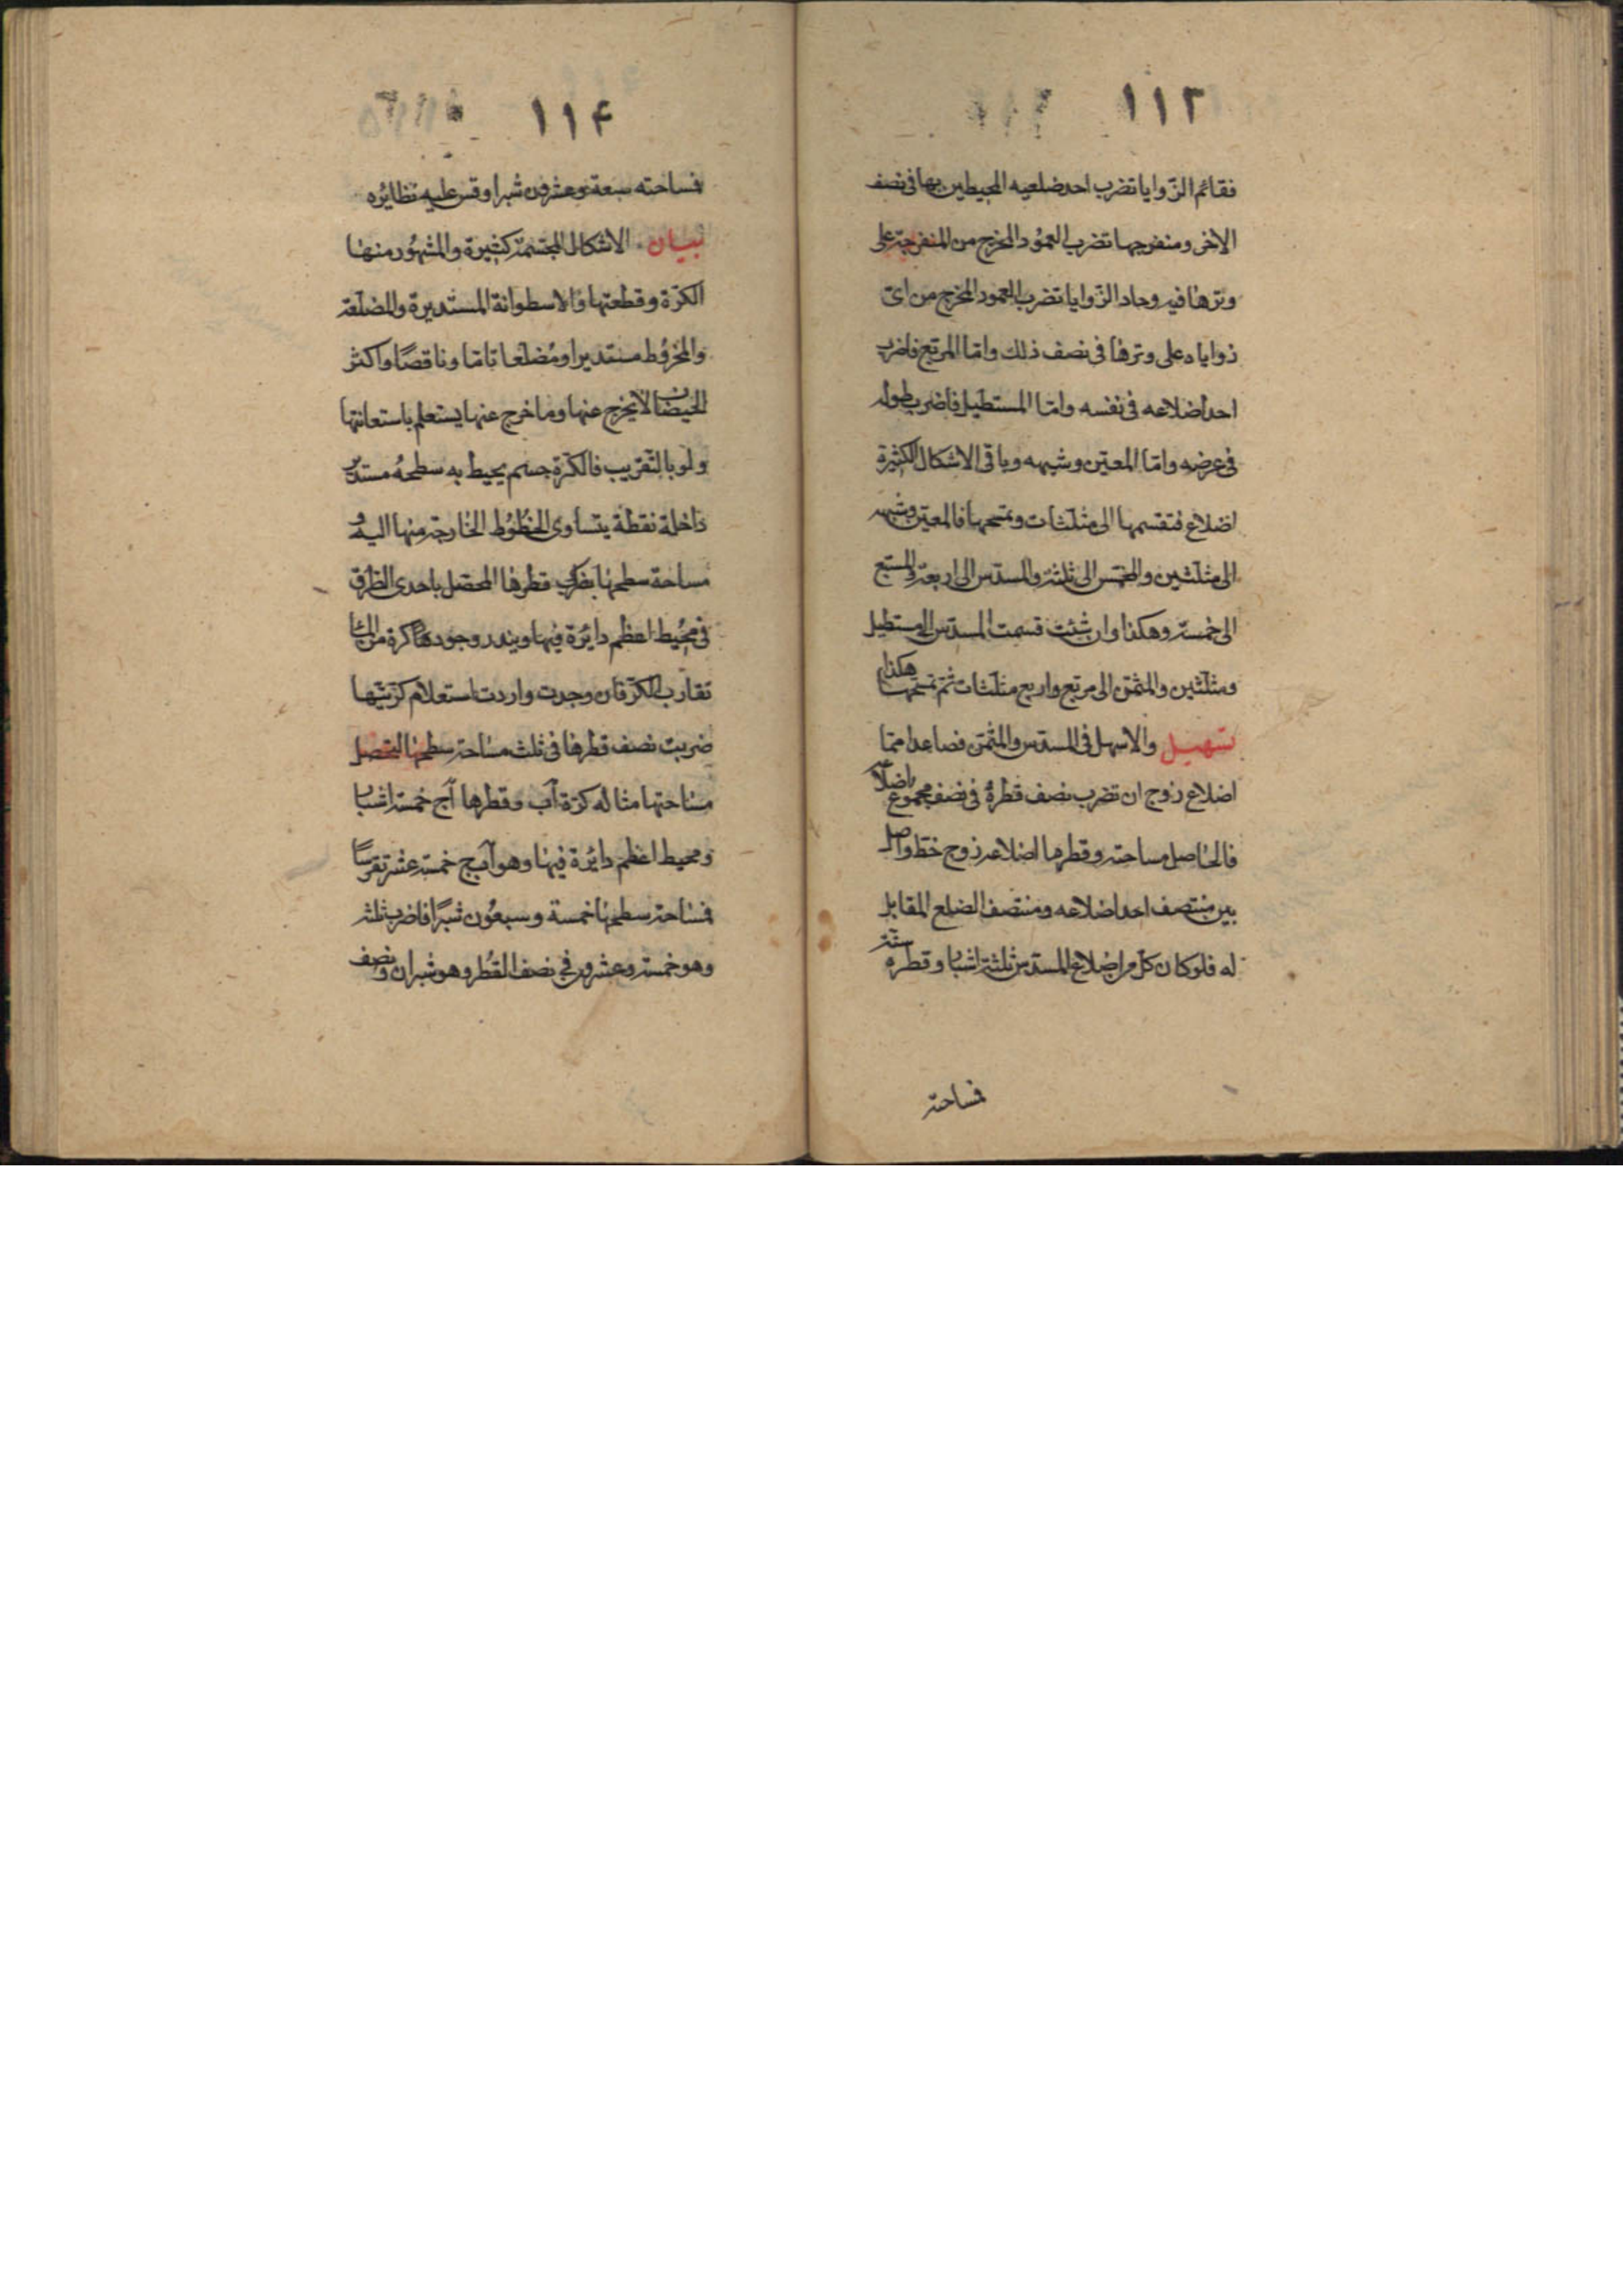 ١١٣
فقائم الزّوايا تضرب احد ضلعيه المحيطين بها فى نصف
الاخرى ومنفرجها تضرب العمود المخرج من المنفرجة على
وترها فيه وحاد الزّوايا تضرب العمود المخرج من اىّ
زواياه على وترها فى نصف ذلك وامّا المربّع فاضرب
احد اضلاعه فى نفسه وامّا المستطيل فاضرب طوله
فى عرضه وامّا المعيّن وشبهه وباقى الاشكال الكثيرة
اضلاع فتقسمها الى مثلّثات وتمسحها فالمعيّن وشبهه
الى مثلّثين والمخمّس الى ثلثة والمسدّس الى اربعة والمسبّع
الى خمسة وهكذا وان شئت قسمت المسدّس الى مستطيل
ومثلّثين والمثمّن الى مربّع واربع مثلّثات ثمّ تمسحها هكذا
تسهيل والاسهل فى المسدّس والمثمّن فصاعدا ممّا
اضلاع زوج ان تضرب نصف قطره فى نصف مجموع اضلاعه
فالحاصل مساحته وقطر ما اضلاعه زوج خطّ واصل
بين منتصف احد اضلاعه ومنتصف الضلع المقابل
له فلو كان كلّ من اضلاع المسدّس ثلثة اشبار وقطره ستّة
فمساحته
١١۴
فمساحته سبعة وعشرون شبرا وقس عليه نظائره
بيان الاشكال المجسّمة كثيرة والمشهور منها
الكرّة وقطعتها والاسطوانة المستديرة والمضلّعة
والمخروط مستديرا ومضلّعا تامّا وناقصًا واكثر
الحيضان لا يخرج عنها وما خرج عنها يستعلم باستعانتها
ولو بالتّقريب فالكرّة جسم يحيط به سطحهُ مستدير
داخلة نقطة يتساوى الخطوط الخارجة منها اليه و
مساحة سطحها بضرب قطرها المحصّل باحدى الطرق
فى محيط اعظم دائرة فيها ويندر وجود هنا كرة من الماء
تقارب الكرّ فان وجدت واردت استعلام كرّيّتها
ضربت نصف قطرها فى ثلث مساحة سطحها لتحصل
مساحتها مثاله كرّة آب وقطرها آج خمسة اشبار
ومحيط اعظم دائرة فيها وهو آبج خمسة عشر تقريبًا
فمساحة سطحها خمسة وسبعون شبرًا فاضرب ثلثه
وهو خمسة وعشرون فى نصف القطر وهو شبران ونصف